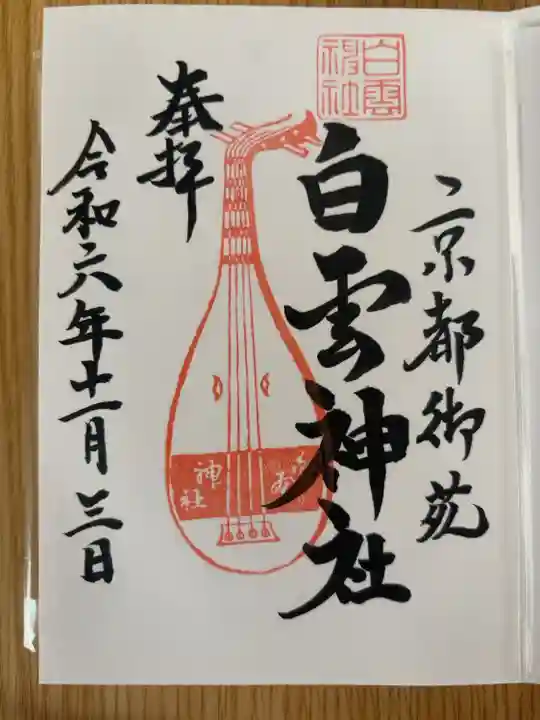 京都御苑
白雲
神社
白雲神社
白雲
神社
奉拝
令和六年十一月三日